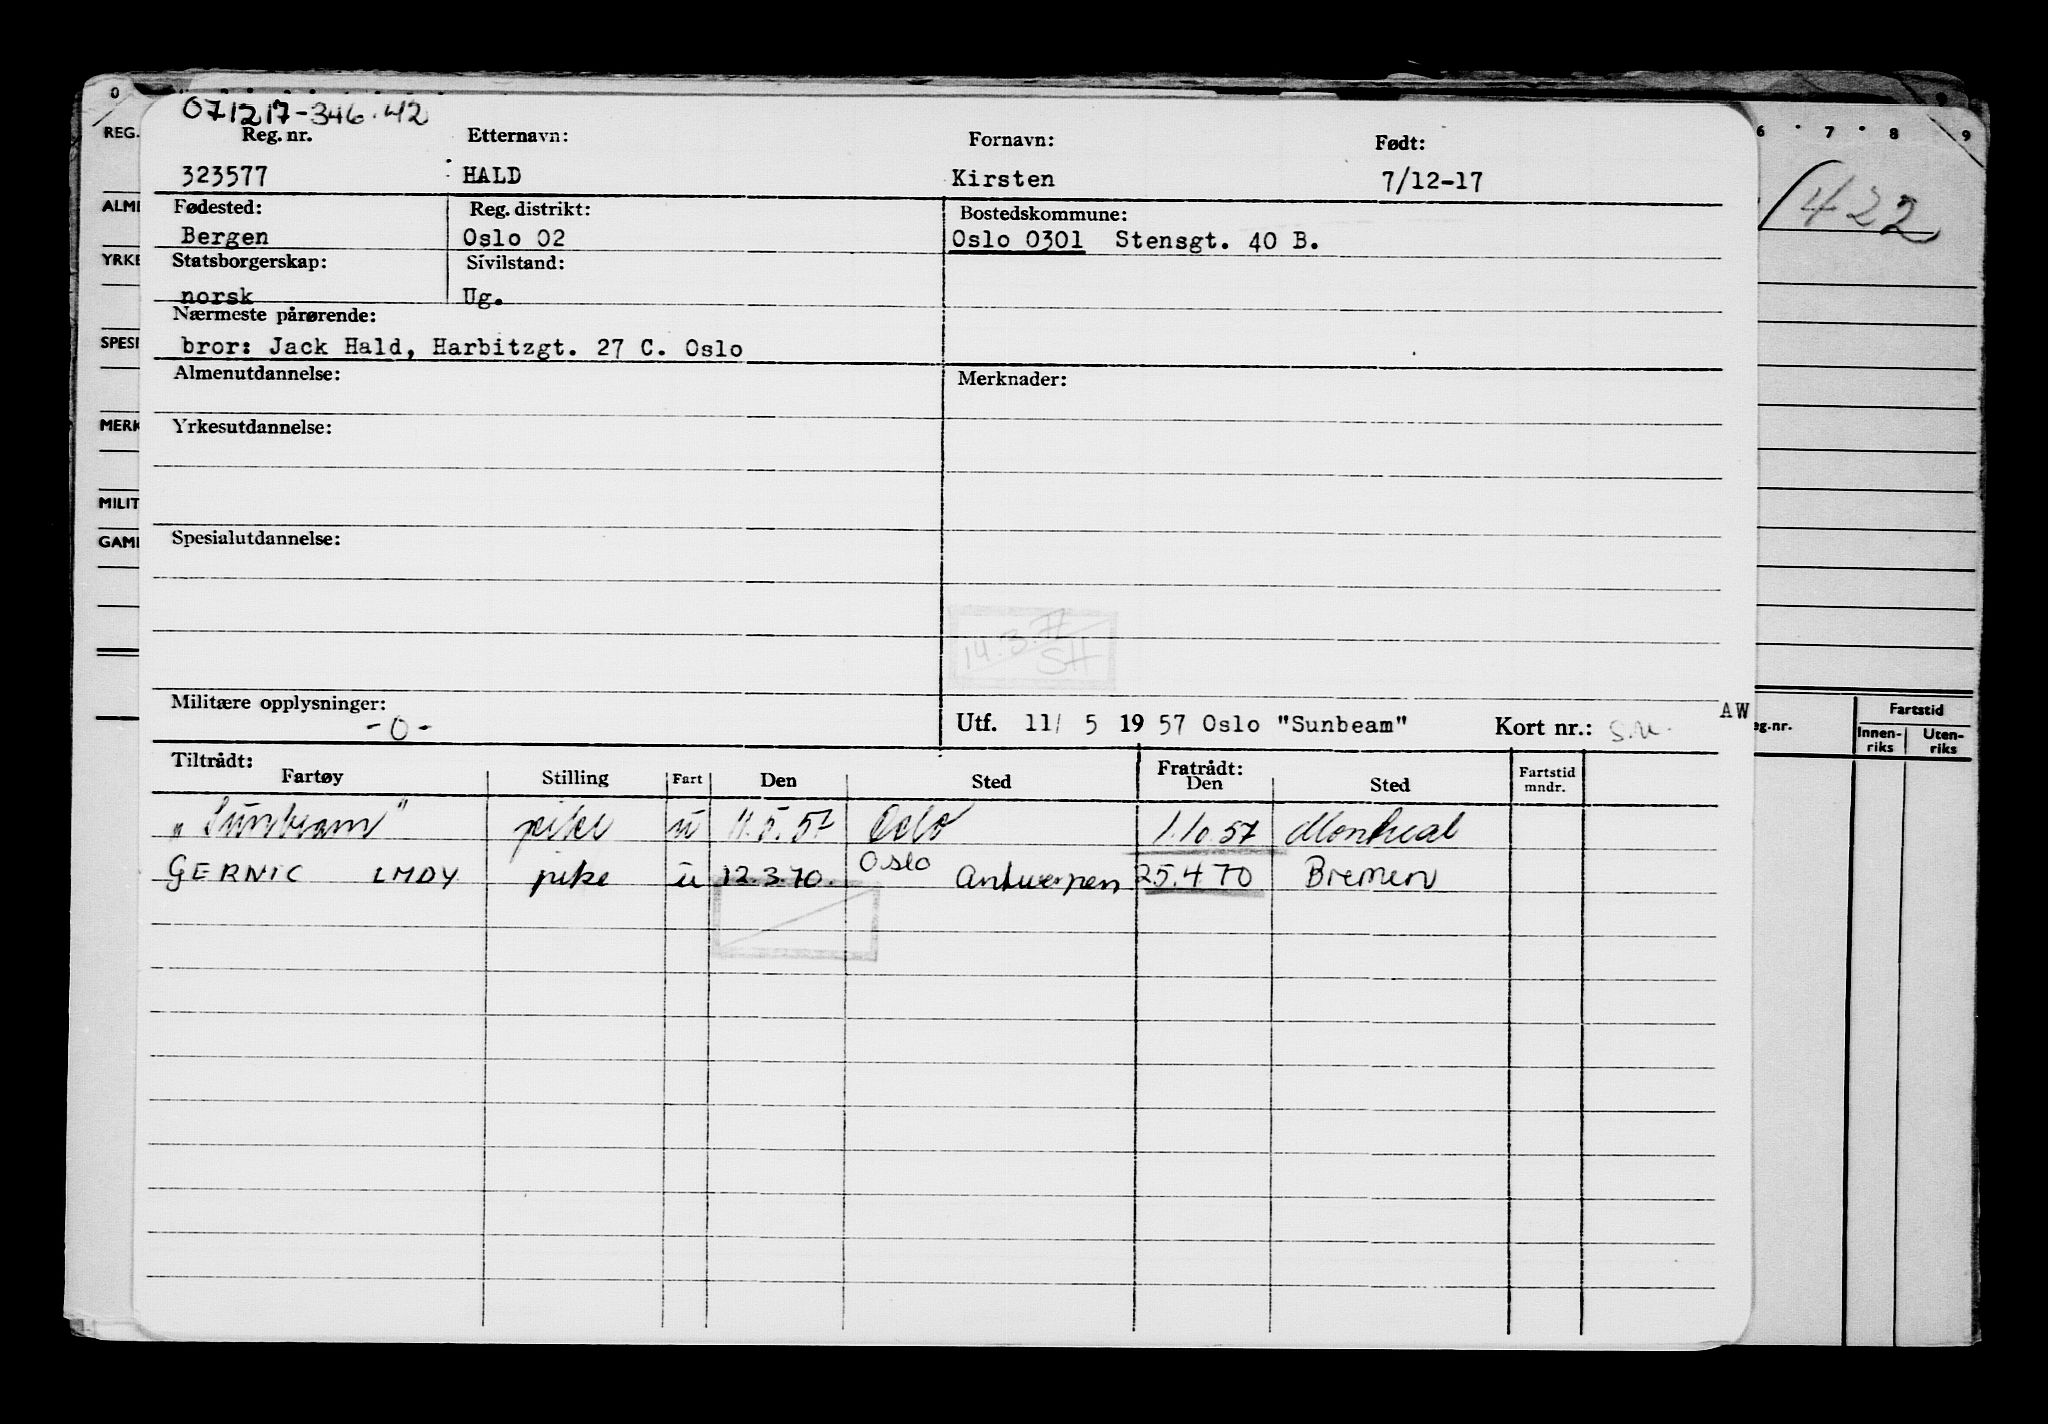 071217-346.42
Reg. nr. Etternavn: Fornavn: Født:
323577 HALD Kirsten 7/12-17
Fødested: Reg. distrikt: Bostedskommune:
Bergen Oslo 02 Oslo 0301 Stensgt. 40 B.
Statsborgerskap: Sivilstand:
norsk Ug.
Nærmeste pårørende:
bror: Jack Hald, Harbitzgt. 27 C. Oslo
Almenutdannelse: Merknader:
Yrkesutdannelse:
Spesialutdannelse:
14.3.77
SH
Militære opplysninger:
-0-
Utf. 11/ 5 19 57 Oslo "Sunbeam" Kort nr.: AW
Tiltrådt: Fratrådt:
Fartøy Stilling Fart Den Sted Den Sted Fartstid mndr.
"Sunbeam" pike u 11.5.57 Oslo 1.10.57 Montreal
GERNIC LMDY pike u 12.3.70. Oslo Antwerpen 25.4 70 Bremen
0 6 7 8 9
REG.
ALM
YRKE
SPESI
MERK
MILIT
GAM
1422
eg.nr. Fartstid
Innen-riks Uten-riks